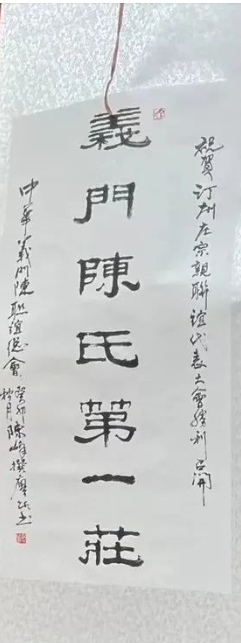 祝賀汀州庄宗親聯誼代表大會勝利召開
義門陳氏第一莊
中華義門陳聯誼總會
癸卯 陳峰撰